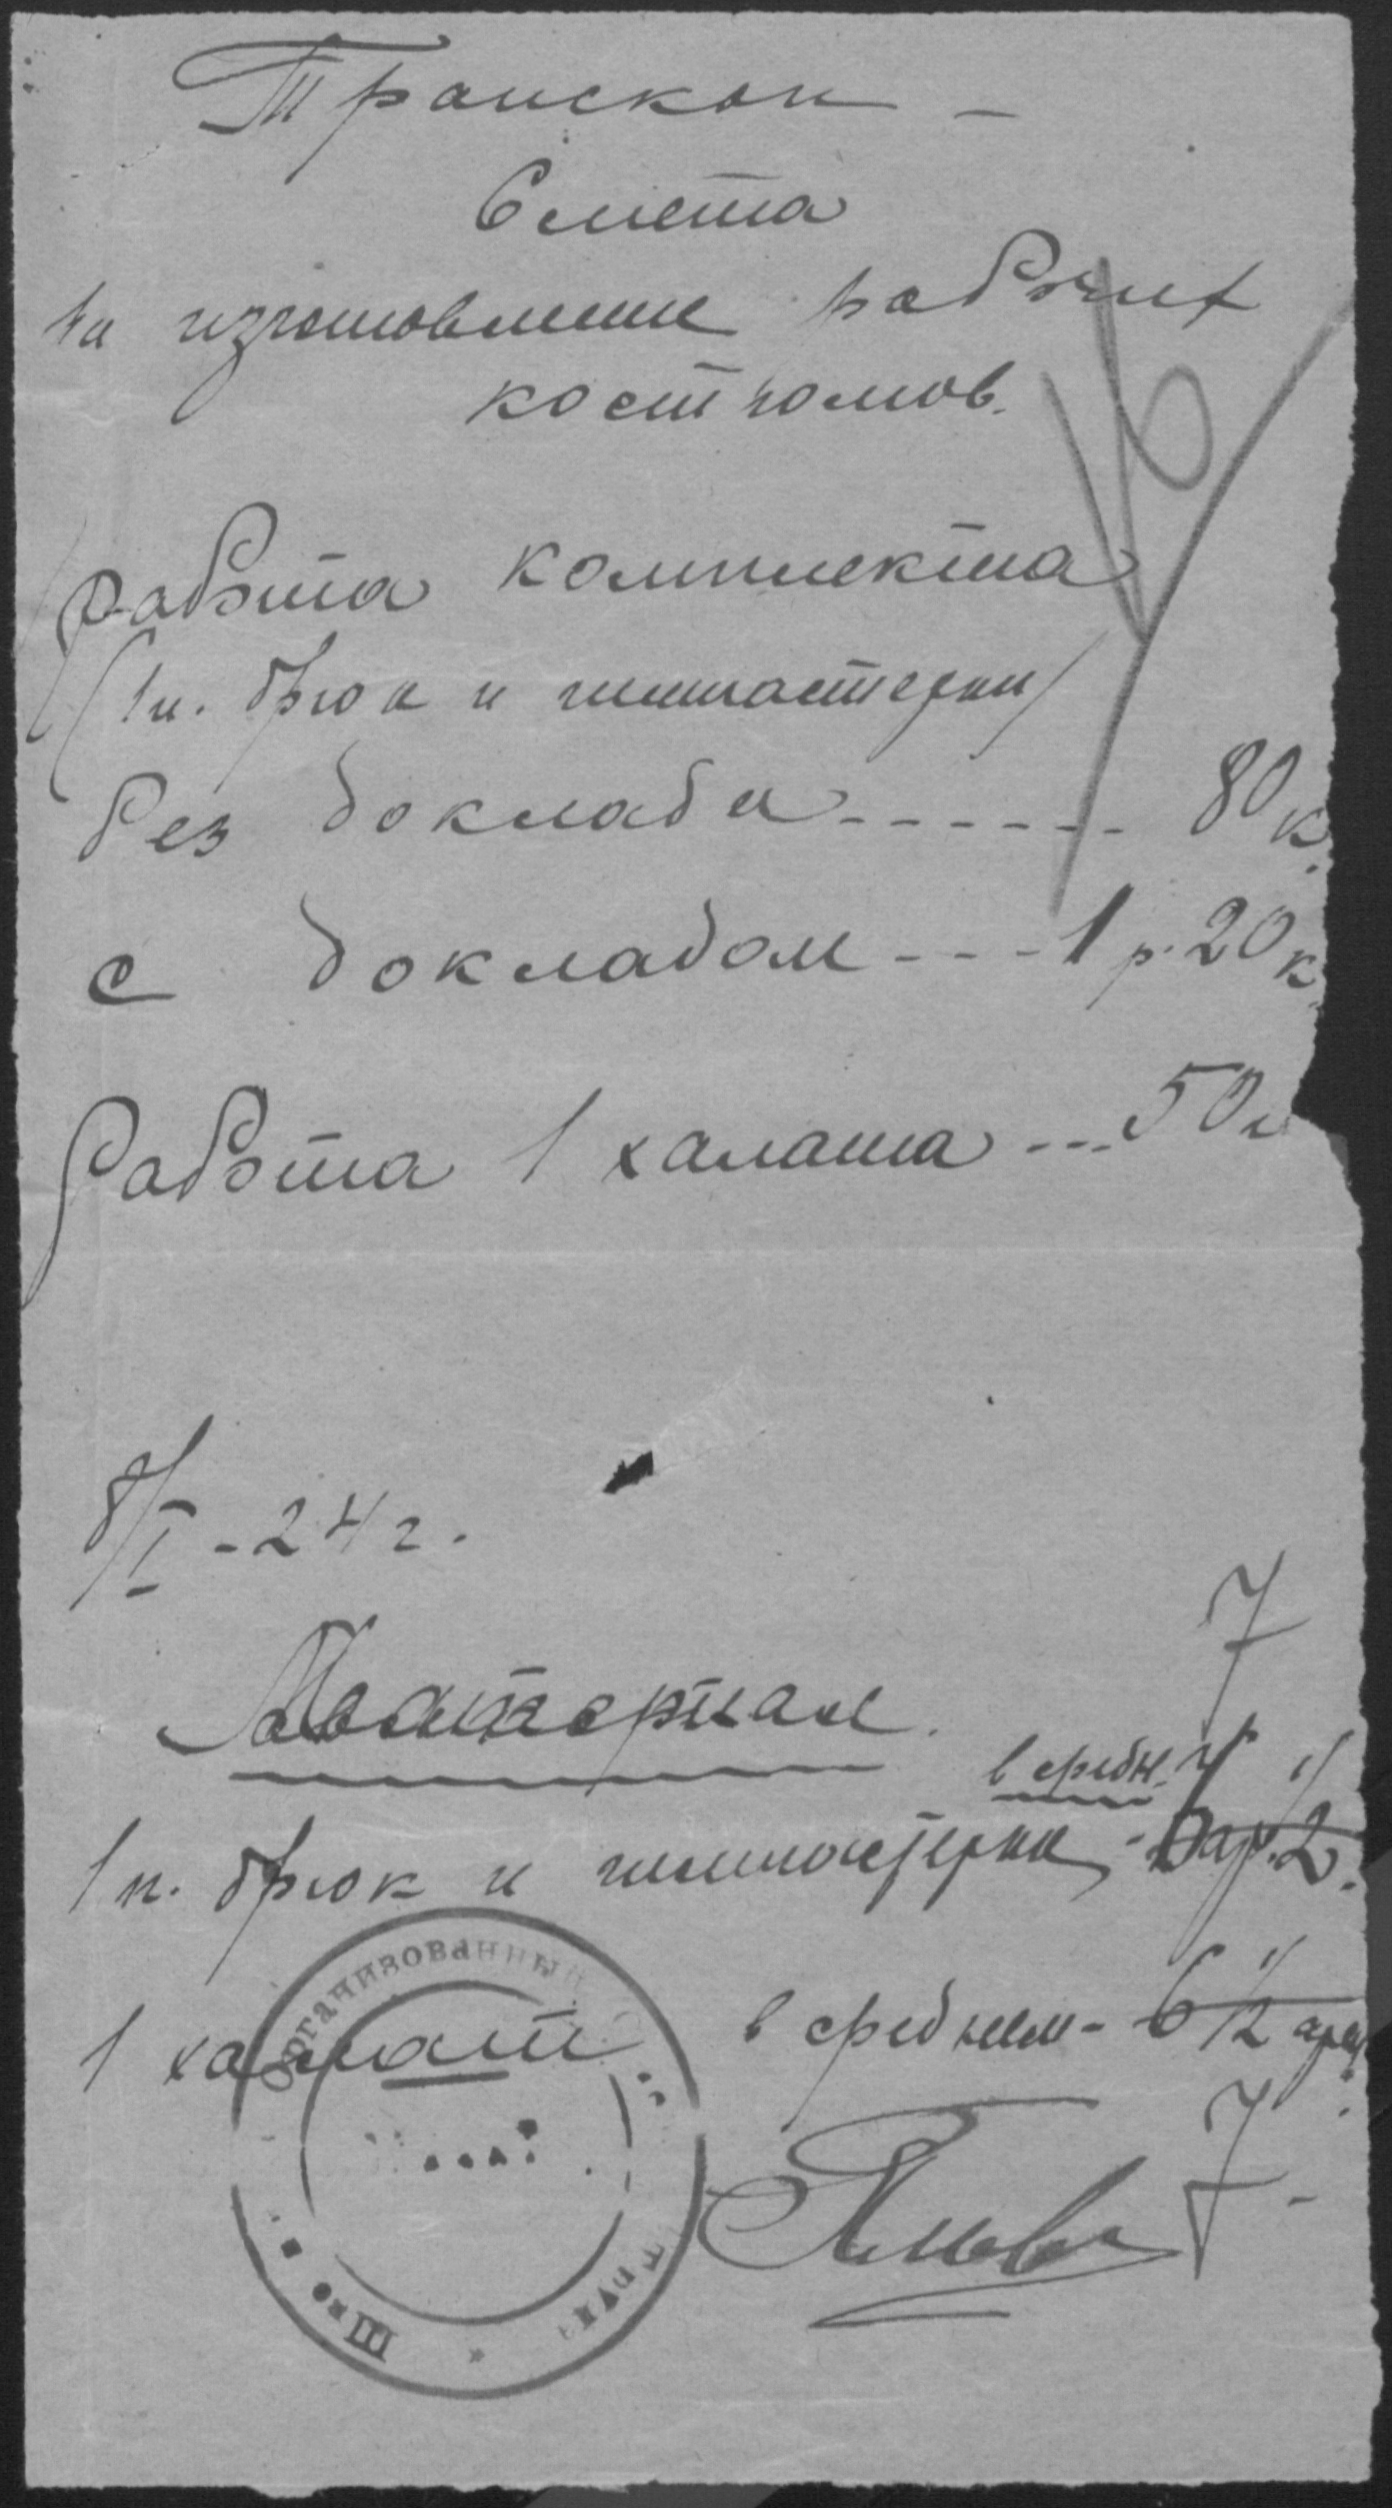 Транскан -
Смета
на изготовление рабочих
костюмов.
Работа комплекта
(1 п. брюк и гимнастерки)
без доклада ------- 80 к.
с докладом --- 1 р. 20 к.
Работа 1 халата --- 50 к
8/I - 24 г.
7
Материал.
в средн.
1 п. брюк и гимнастерки -
1 халат в среднем - 6 1/2 арш.
7 -
Организованный
Труд
Шко